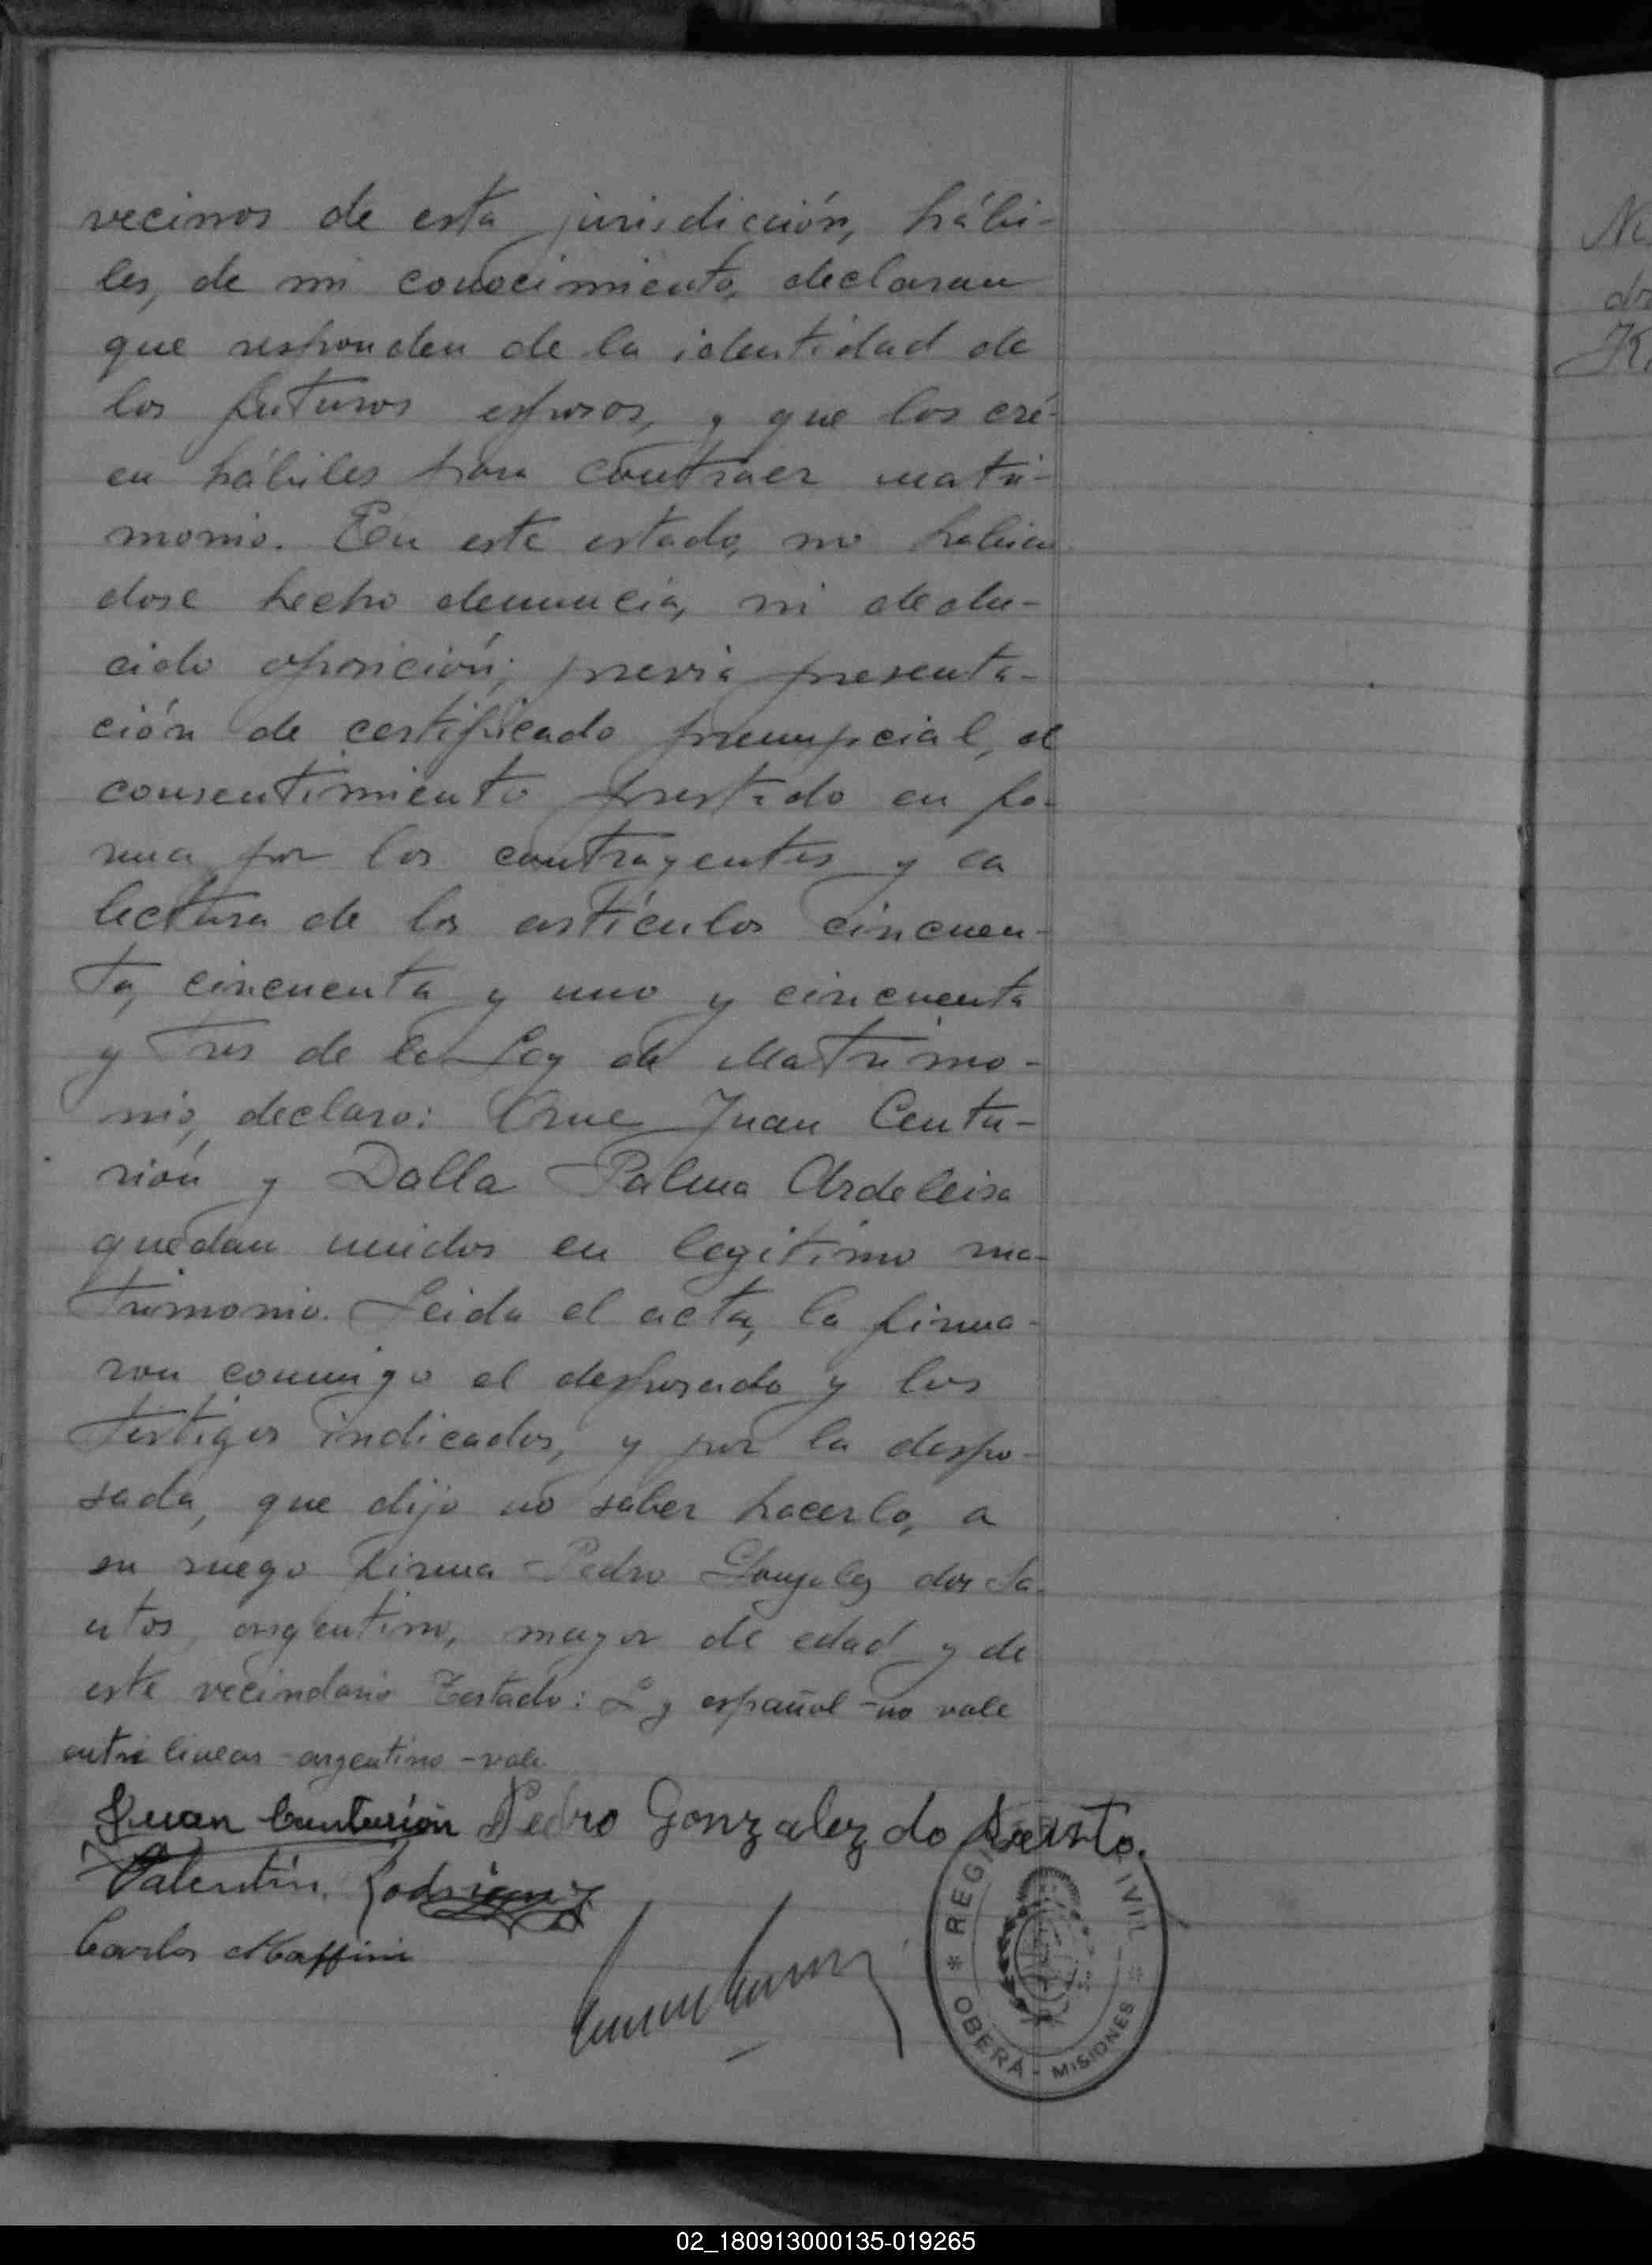 vecinos de esta jurisdicción, hábi-
les, de mi conocimiento, declaran
que responden de la identidad de
los futuros esposos, y que los cré-
en hábiles para contraer matri-
monio. En este estado, no habien
dose hecho denuncia, ni dedu-
cido oposición; previa presenta-
ción de certificado prenupcial, el
consentimiento prestado en fo-
rma por los contrayentes y la
lectura de los artículos cincuen-
ta, cincuenta y uno y cincuenta
y tres de la Ley de Matrimo-
nio, declaro: Que Juan Centu-
rión y Dalla Palma Ardeleisa
quedan unidos en legítimo ma-
trimonio. Leida el acta, la firma-
ron conmigo el desposado y los
testigos indicados, y por la despo-
sada, que dijo no saber hacerlo, a
su ruego firma Pedro Gonzalez dos Sa-
ntos, argentino, mayor de edad y de
este vecindario Testado: L y español - no vale
entre lineas - argentino - vale
Juan Centurión Pedro Gonzalez do Santo.
Valentín Rodriguez
Carlos Maffini
REGI IVIL
OBERÁ - MISIONES
Ni
K
02_180913000135-019265